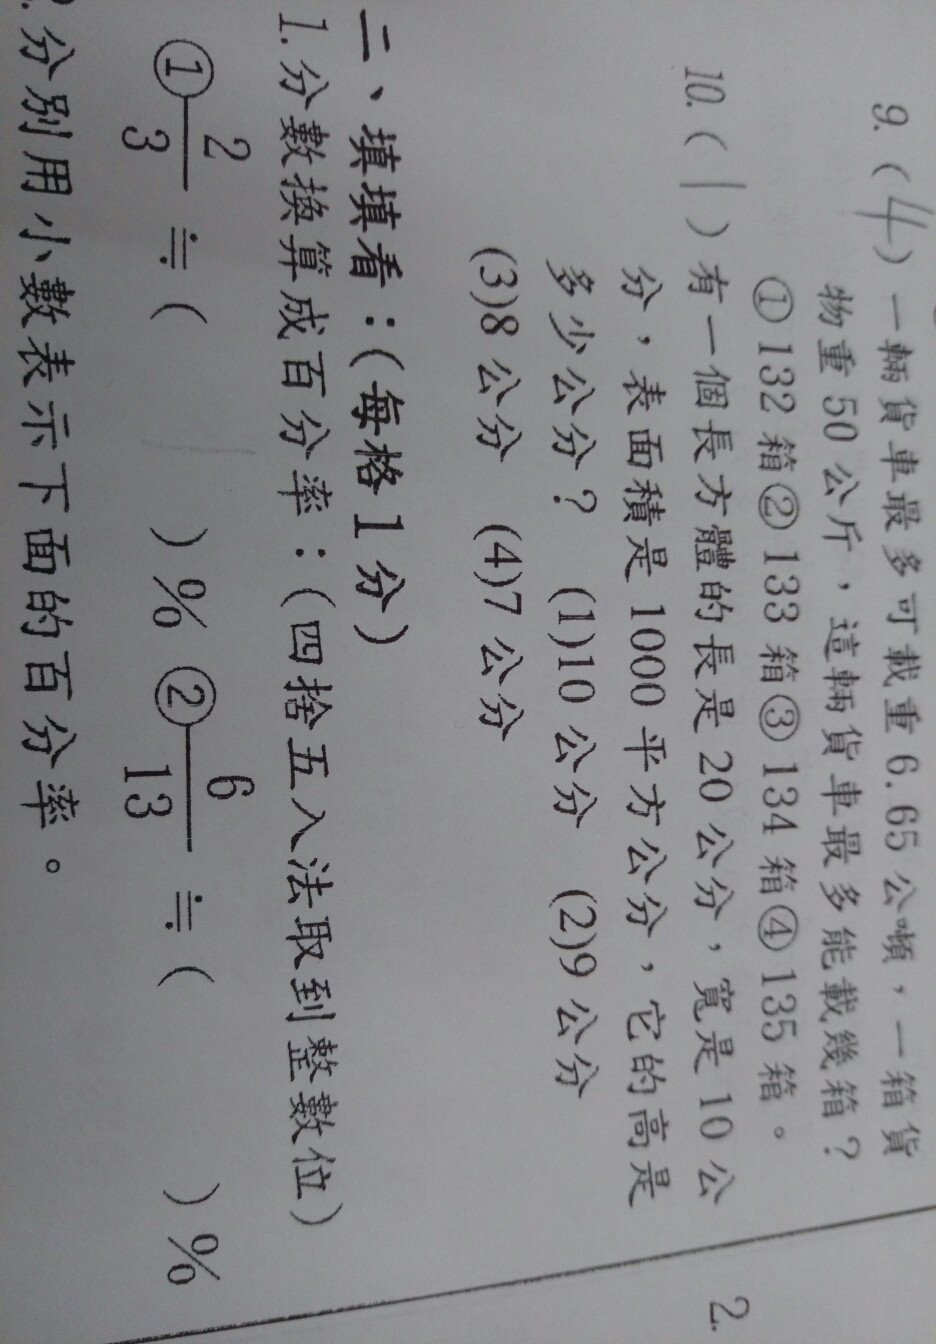 9. (4) 一輛貨車最多可載重 6.65 公噸，一箱貨
物重 50 公斤，這輛貨車最多能載幾箱？
①132 箱②133 箱③134 箱④135 箱。
10. (1) 有一個長方體的長是 20 公分，寬是 10 公
分，表面積是 1000 平方公分，它的高是
多少公分？ (1)10 公分 (2)9 公分
(3)8 公分 (4)7 公分
二、填填看：(每格 1 分)
1. 分數換算成百分率：(四捨五入法取到整數位)
① 2/3 ≒ ( )% ② 6/13 ≒ ( )%
2. 分別用小數表示下面的百分率。
2.